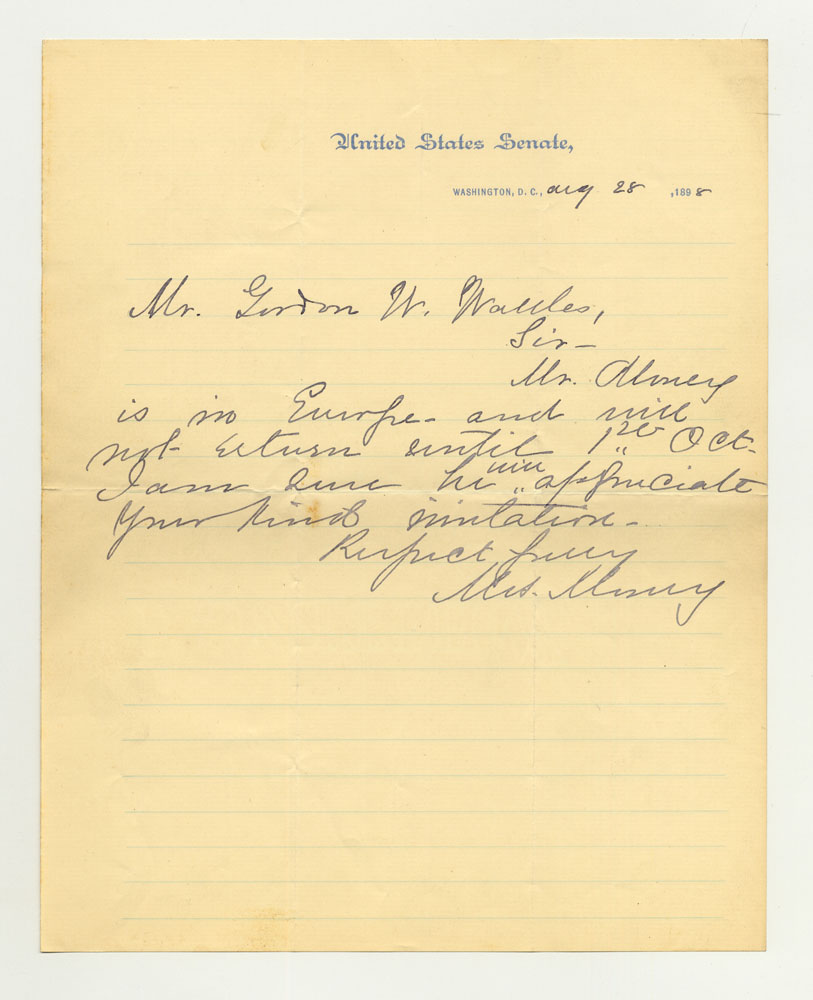 United States Senate,
WASHINGTON, D. C., Aug 28 , 1898
Mr. Gordon W. Wattles,
Sir—
Mr. Money
is in Europe— and will
not return until 1st Oct.
I am sure he will appreciate
your kind invitation—
Respectfully
Mrs. Money